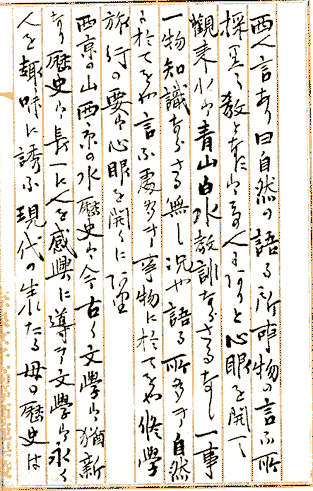 西人言あり曰自然の語る所事物の言ふ所
採りて教となすは其の人にありと心眼を開て
観来れは青山白水教訓ならさるなし一事
一物知識ならさる無し況や語る所多き自然
に於てをや言ふ處多き事物に於てをや修学
旅行の要は心眼を開くにあり
西京の山西京の水歴史は今古く文學は猶新
なり歴史は長へに人を感興に導き文學は永く
人を趣味に誘ふ現代の生れたる母の歴史は